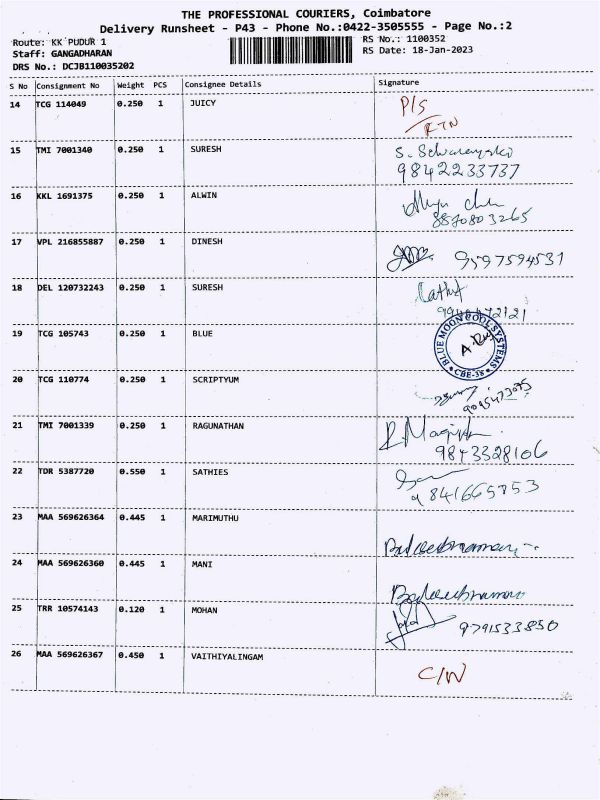 THE PROFESSIONAL COURIERS, Coimbatore
Delivery Runsheet - P43 - Phone No.:0422-3505555 - Page No.:2
Route: KK PUDUR 1 RS No.: 1100352
Staff: GANGADHARAN RS Date: 18-Jan-2023
DRS No.: DCJB110035202
S No Consignment No Weight PCS Consignee Details Signature
14 TCG 114049 0.250 1 JUICY P/S
RTN
15 TMI 7001340 0.250 1 SURESH
9842233737
16 KKL 1691375 0.250 1 ALWIN
8870803265
17 VPL 216855887 0.250 1 DINESH 9597594531
18 DEL 120732243 0.250 1 SURESH
19 TCG 105743 0.250 1 BLUE BLUE MOON COOL SYSTEMS CBE-38
20 TCG 110774 0.250 1 SCRIPTYUM
21 TMI 7001339 0.250 1 RAGUNATHAN
9843328106
22 TDR 5387720 0.550 1 SATHIES
23 MAA 569626364 0.445 1 MARIMUTHU
24 MAA 569626360 0.445 1 MANI
25 TRR 10574143 0.120 1 MOHAN 9791533850
26 MAA 569626367 0.450 1 VAITHIYALINGAM C/W